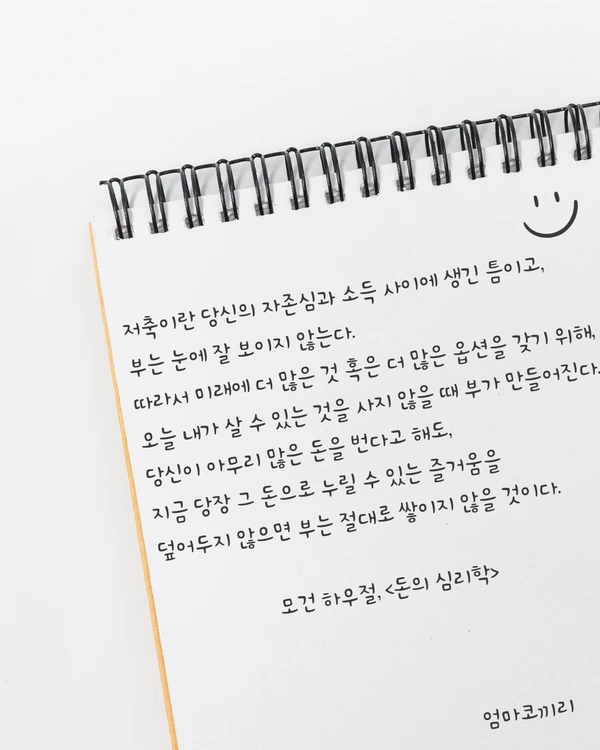 저축이란 당신의 자존심과 소득 사이에 생긴 틈이고,
부는 눈에 잘 보이지 않는다.
따라서 미래에 더 많은 것 혹은 더 많은 옵션을 갖기 위해,
오늘 내가 살 수 있는 것을 사지 않을 때 부가 만들어진다.
당신이 아무리 많은 돈을 번다고 해도,
지금 당장 그 돈으로 누릴 수 있는 즐거움을
덮어두지 않으면 부는 절대로 쌓이지 않을 것이다.
모건 하우절, <돈의 심리학>
엄마코끼리